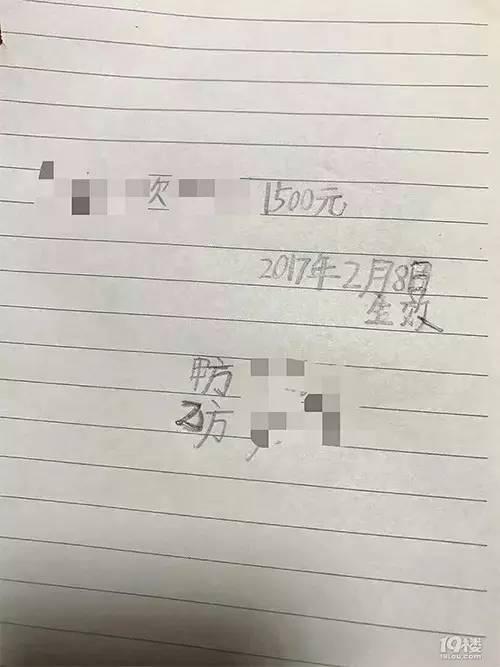 欠 1500元
2017年2月8日
生效
甲方
乙方
19楼
19lou.com